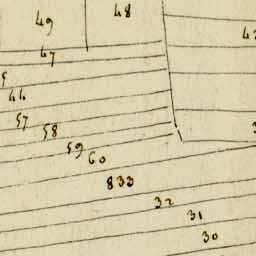 49
48
47
44
57
58
59
60
833
32
31
30